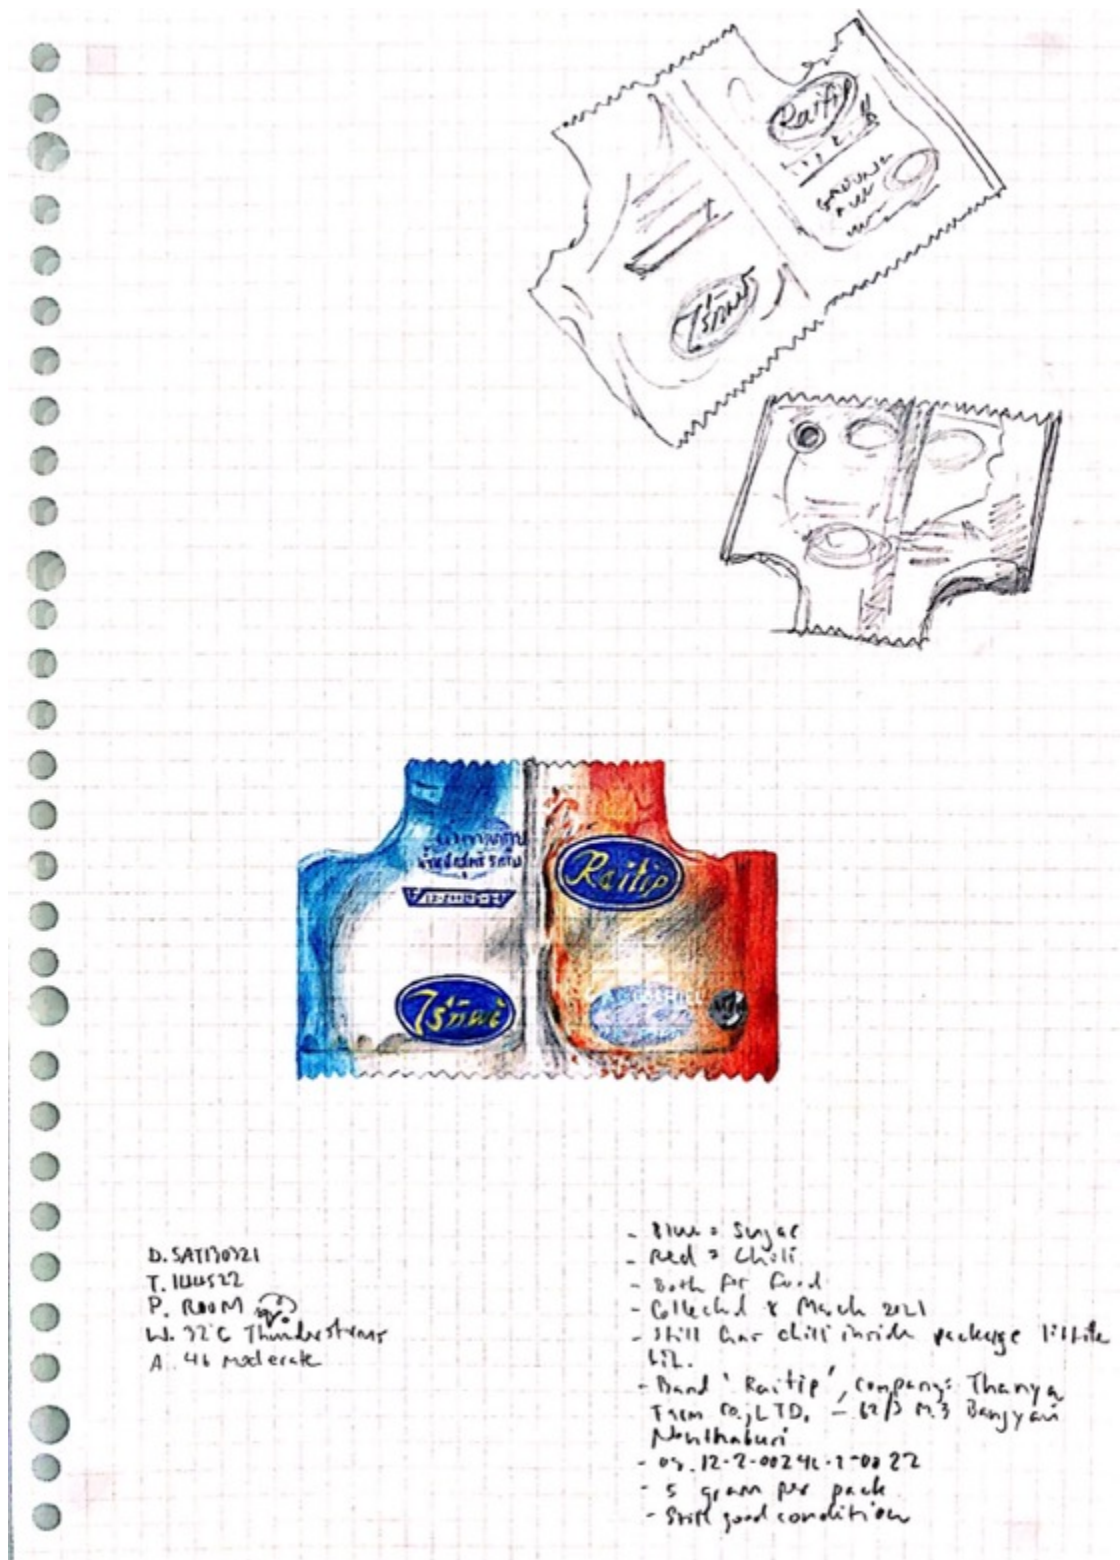 Raitip
GROUND
ไร่ทิพย์
น้ำหนักสุทธิ 5 กรัม
Raitip
ไร่ทิพย์
D. SAT130321
T. 144522
P. ROOM
W. 32°C Thunderstroms
A. 46 Moderate
- Blue = Sugar
- Red = Chili
- Both for food
- Collected 8 March 2021
- Still has chili inside package little
bit.
- Band 'Raitip', company: Thanya
Farm Co., LTD. - 62/3 M.3 Bangyai
Nonthaburi
- 5 gram per pack
- Still good condition